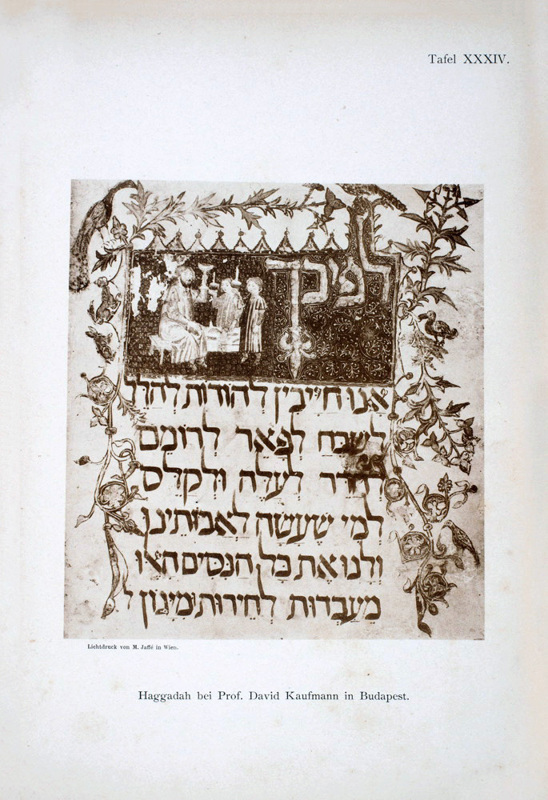 Tafel XXXIV.
לפיכך
אנו חייבין להודות להלל
לשבח לפאר לרומם
להדר לעלה ולקלס
למי שעשה לאבותינו
ולנו את כל הנסים האו
מעבדות לחירות ומיגון ל
Lichtdruck von M. Jaffé in Wien.
Haggadah bei Prof. David Kaufmann in Budapest.